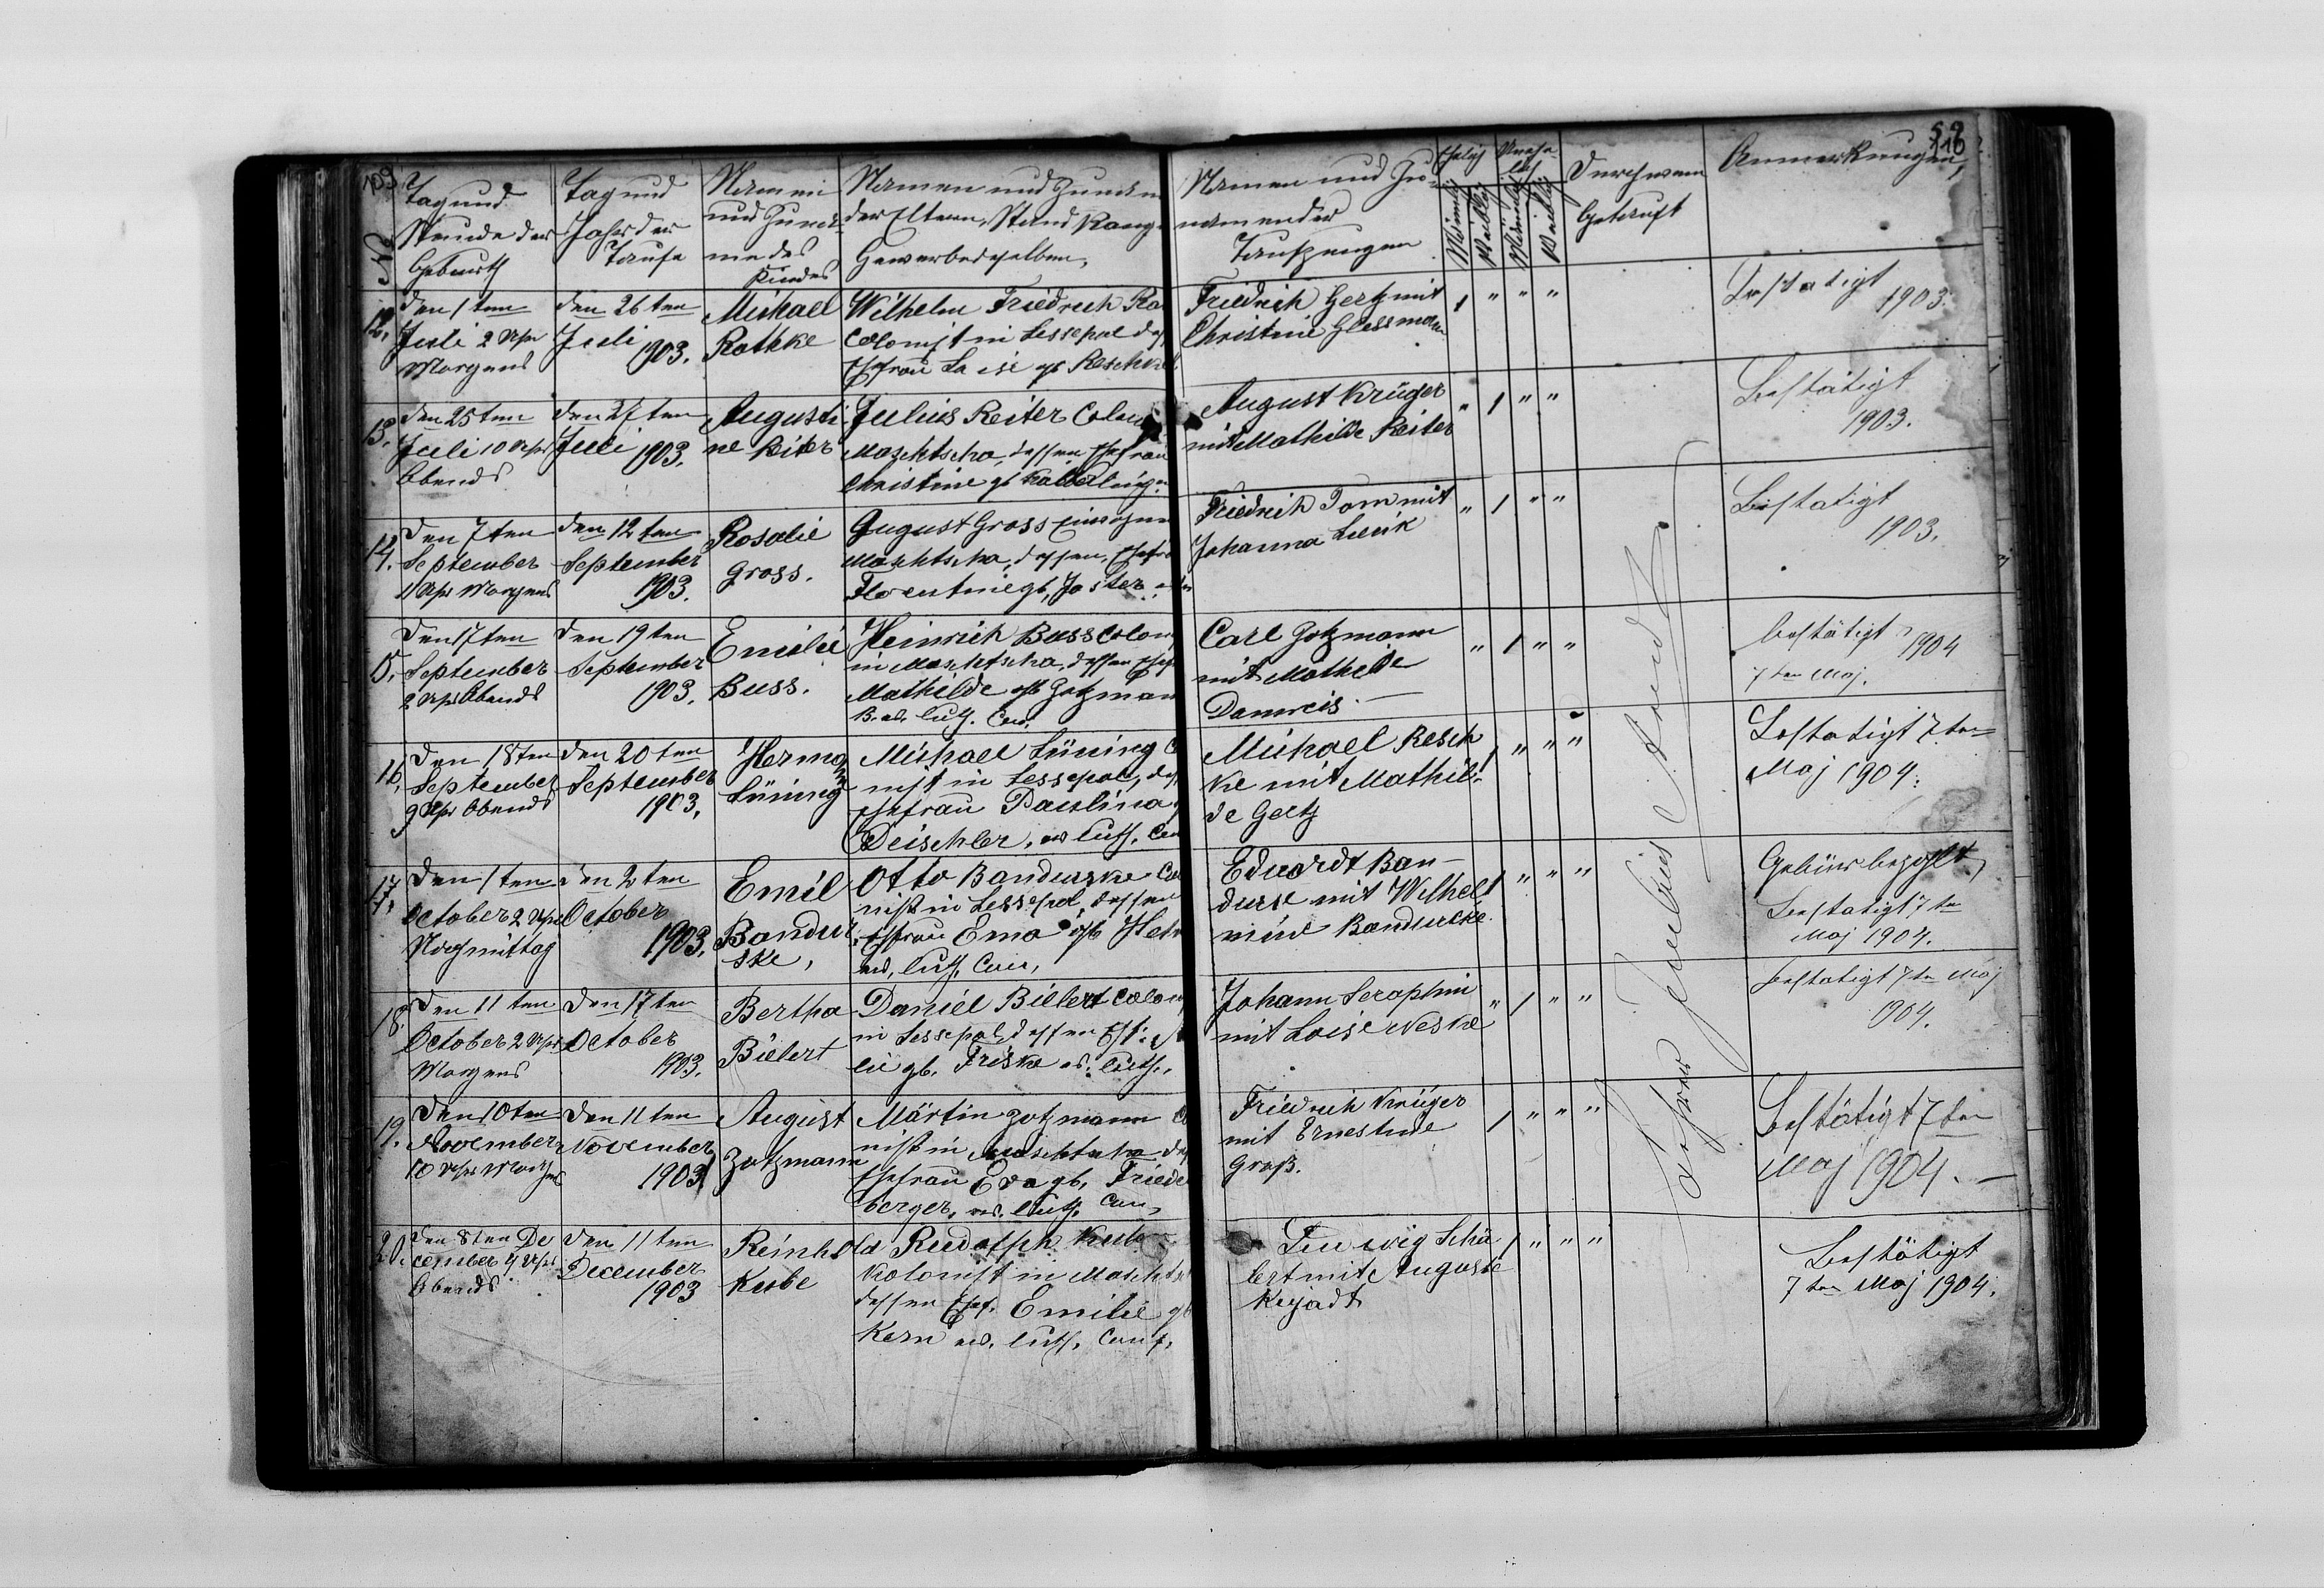 109
No
Tag und
Stunde der
Geburth
Tag und
Jahr der
Taufe
Namen
und Zuna-
me des
Kindes
Namen und Zunamen
der Eltern, Stand Rang
Gewerbe derselben,
Namen und Zu-
namen der
Taufzeugen
Ehelig
Männlig
Weiblig
Unehe-
lig
Männlig
Weiblig
Durch wem
Getauft
Anmerkungen,
52
110
12.
den 1ten
Juli 2 Uhr
Morgens
den 26ten
Juli
1903.
Michael
Rothke
Wilhelm Friedrich Ro
Colonist in Lessepol des
Ehefrau gb Reschke
Friedrich Gertz mit
Christine Glessmann
1 " " "
Bestatigt
1903.
13.
den 25ten
Juli 10 Uhr
Abends
den 27ten
Juli 1903.
Augusti-
ne Reiter
Julius Reiter Colon
Maschtscha, dessen Ehefrau
Christine gb
August Krüger
mit Mathilde Reiter
" 1 " "
Bestätigt
1903.
14.
den 7ten
September
11 Uhr Morgens
den 12ten
September
1903.
Rosalie
Gross.
August Gross
Maschtscha, dessen, Ehefr
Florentine gb, Joster
Friedrich Tom mit
Johanna Lenk
" 1 " "
Bestatigt
1903.
15.
den 17ten
September
2 Uhr Abends
den 19ten
September
1903.
Emilie
Buss.
Heinrich Buss Colon
in Maschtscha, dessen Ehef
Mathilde gb Gotzman
B. ev. luth. Con.
Carl Gotzmann
mit Mathilde
Damreis.
" 1 " "
bestätigt 1904
7ten Maj.
16.
den 18ten
September
9 Uhr Abends
den 20ten
September
1903.
Herman
Lüning
Michael Lüning C
nist in Lessepol, des
Ehefrau Paulina
Deischler, ev luth. Con
Michael Resch
ke mit Mathil-
de Gertz
1 " " "
Bestatigt 7ten
Maj 1904.
17.
den 1ten
October 2 Uhr
Nachmittag
den 2ten
October
1903.
Emil
Bandur
ske,
Otto Bandurske Co
nist in Lessepol, dessen
Ehefrau Ema gb
ev. luth. Con,
Eduardt Ban-
durske mit Wilhel
mine Bandurcke
1 " " "
Gebürr bezahlt,
Bestatigt 7ten
Maj 1904.
18.
den 11ten
October 2 Uhr
Morgens
den 17ten
October
1903.
Bertha
Bielert
Daniel Bielert Colon
in Lessepol dessen Ehf:
lie gb. Friske ev. luth.,
Johann Seraphin
mit Loise Neske
" 1 " "
bestatigt 7ten Maj
1904.
19.
den 10ten
November
10 Uhr Morgens
den 11ten
November
1903
August
Zotzmann
Märtin Zotzmann C
nist in Maschtscha des
Ehefrau Eva gb. Friede
berger, ev. luth. Con,
Friedrich Krüger
mit Ernestine
Groß.
1 " " "
Bestätigt 7ten
Maj 1904.
20.
den 8ten De
cember 4 Uhr
Abends
den 11ten
December
1903
Reinhold
Kube
Rudolph Kube
Kolonist in Maschts
dessen Ehef. Emilie gb
Kern ev. luth. Conf.
Ludwig Schu
lert mit Auguste
1 " " "
Bestätigt
7ten Maj 1904.
Julius